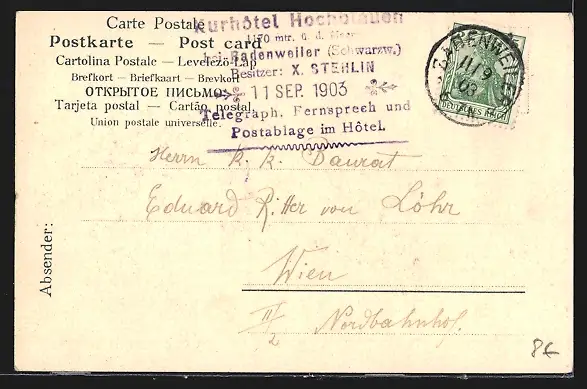 Carte Postale
Postkarte — Post card
Cartolina Postale — Levelező-Lap
Brefkort — Briefkaart — Brevkort
ОТКРЫТОЕ ПИСЬМО
Tarjeta postal — Cartão postal
Union postale universelle.
Kurhôtel Hochblauen
1170 mtr. ü. d. Meer
bei Badenweiler (Schwarzw.)
Besitzer: X. STEHLIN
11 SEP. 1903
Telegraph, Fernsprech und
Postablage im Hôtel.
BADENWEILER
11/9
03
DEUTSCHES REICH
Herrn K. K. Baurat
Eduard Ritter von Löhr
Wien
II/2 Nordbahnhof.
Absender:
8€